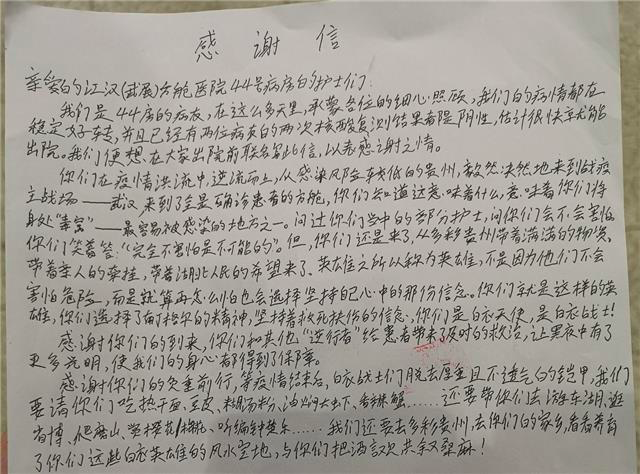 感谢信
亲爱的江汉(武展)方舱医院44号病房的护士们：
我们是44房的病友，在这么多天里，承蒙各位的细心照顾，我们的病情都在
稳定好转，并且已经有两位病友的两次核酸复测结果者是阴性，估计很快就能
出院。我们便想在大家出院前联名写此信，以表感谢之情。
你们在疫情洪流中，逆流而上，从感染风险较低的贵州，毅然决然地来到战疫
主战场——武汉来到了全是确诊患者的方舱，你们知道这意味着什么，意味着你们将
身处"毒窝"——最容易被感染的地方之一。问过你们当中的部分护士，问你们会不会害怕，
你们笑着答："完全不害怕是不可能的"。但，你们还是来了，从多彩贵州带着满满的物资、
带着亲人的牵挂，带着湖北人民的希望来了。英雄之所以称为英雄，不是因为他们不会
害怕危险，而是就算再怎么怕也会选择坚持自己心中的那份信念。你们就是这样的英
雄，你们选择了南丁格尔的精神，坚持着救死扶伤的信念，你们是白衣天使，是白衣战士！
感谢你们的到来，你们和其他"逆行者"给患者带来了及时的救治，让黑夜中有了
更多光明，使我们的身心都得到了保障。
感谢你们的负重前行，等疫情结束后，白衣战士们脱去厚重且不透气的铠甲，我们
要请你们吃热干面、豆皮、糊汤粉、油焖大虾、香辣蟹……还要带你们去游东湖、逛
省博、爬磨山、赏樱花/梅花、听编钟楚乐……我们还要去多彩贵州，去你们的家乡，看看养育
了你们这些白衣英雄的风水宝地，与你们把酒言欢共叙桑麻！